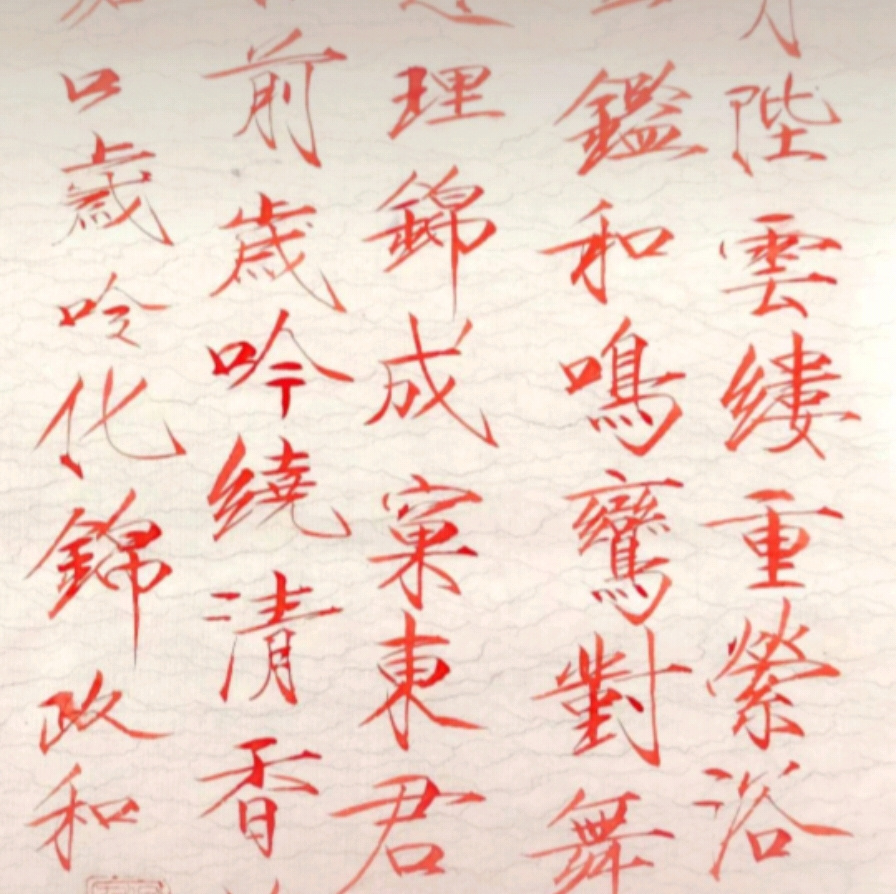 陛雲縷重縈浴
鑑和鳴鸞對舞
理錦成窠東君
前歲吟繞清香
口歲吟化錦政和